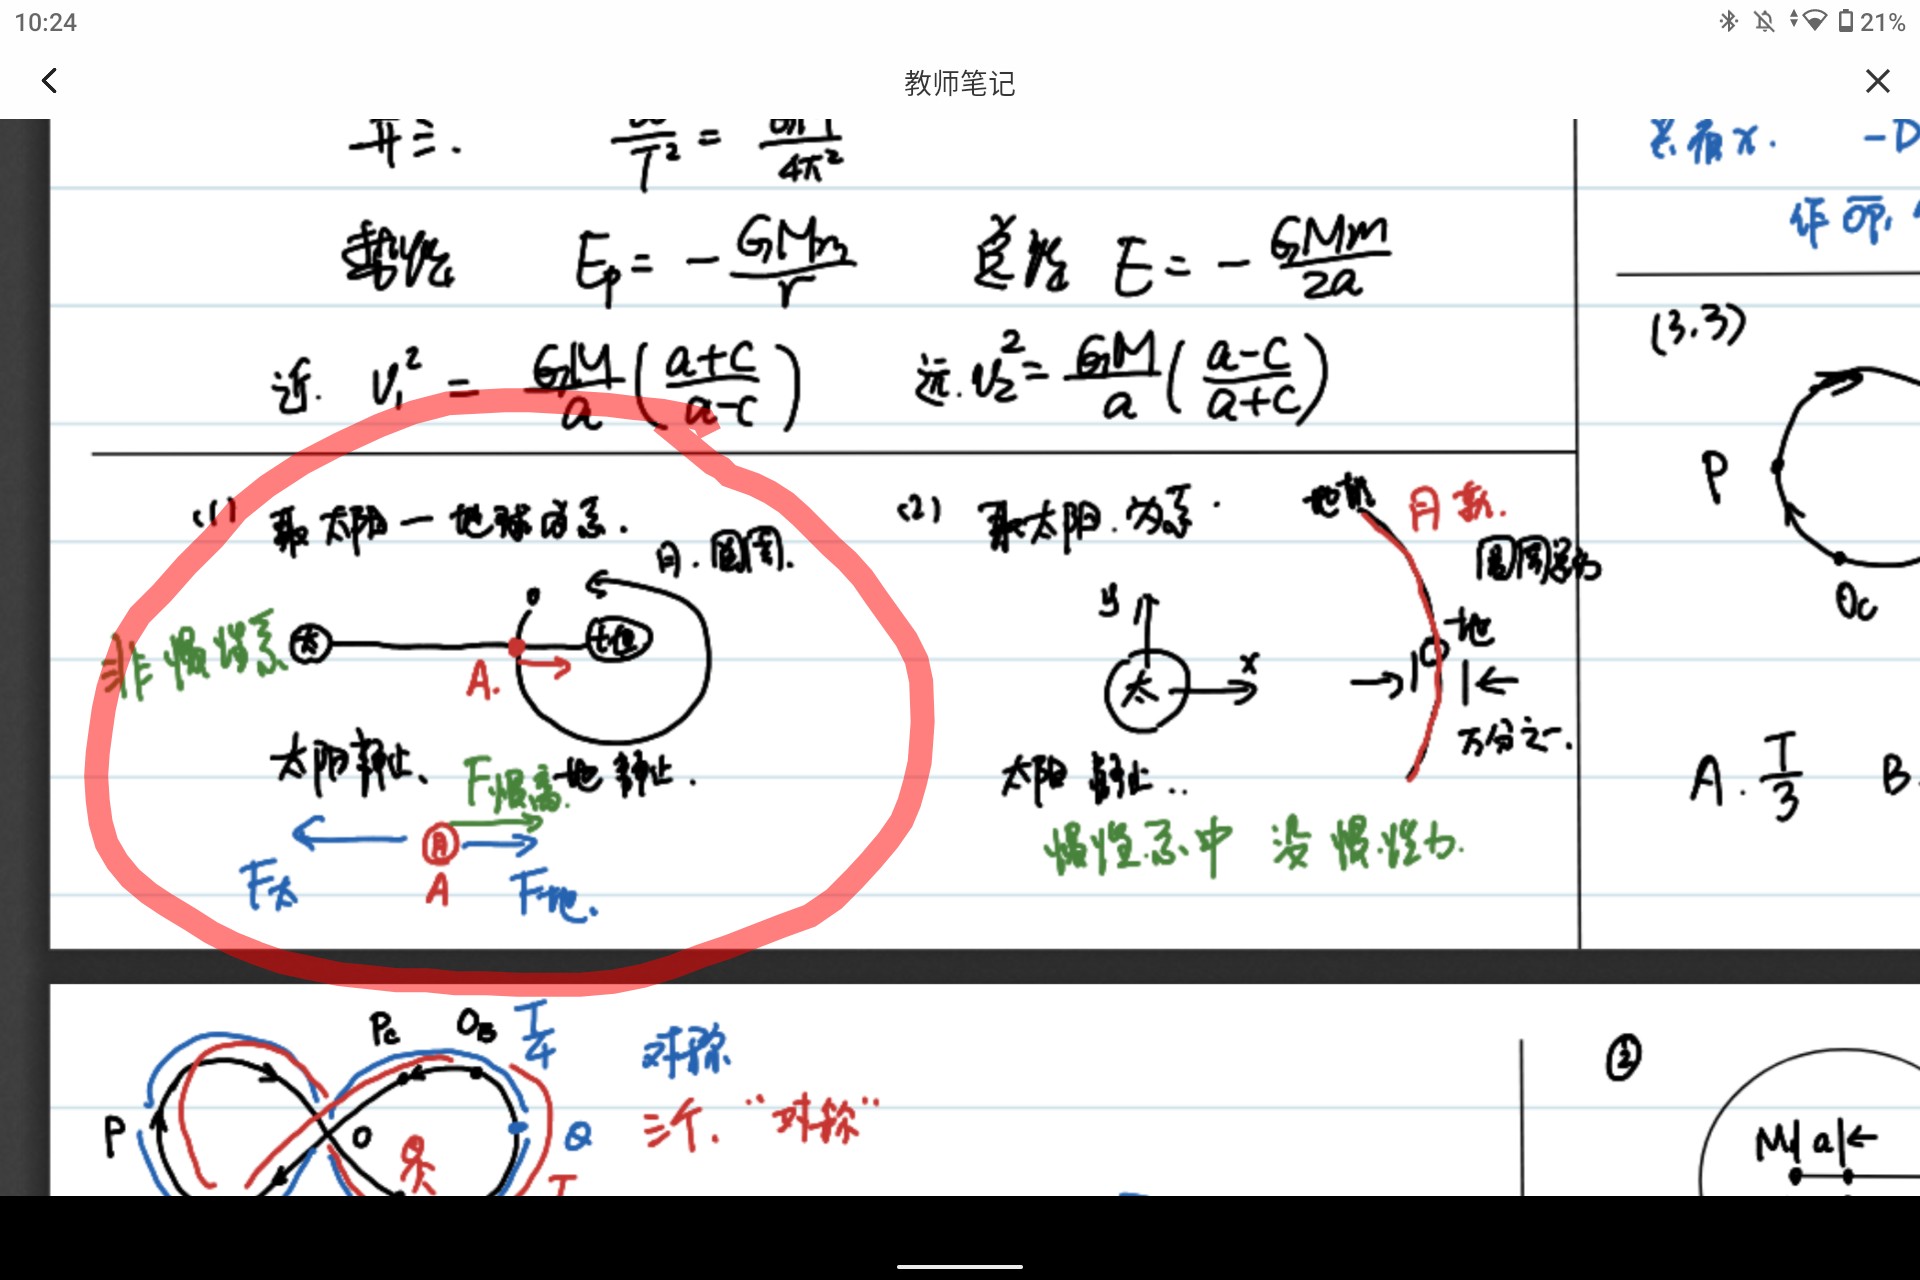 10:24
21%
教师笔记
开三. /T² = /4π²
势能 Ep = - GMm/r 总能 E = - GMm/2a
近. v₁² = GM/a (a+c/a-c) 远. v₂² = GM/a (a-c/a+c)
(1) 取太阳-地球为系.
月.圆周.
O
非惯性系
太
地
A.
太阳静止、地静止.
F惯离
月
F太
A
F地.
(2) 取太阳.为系.
地轨
月轨.
圆周运动
y
x
太
地
万分之一.
太阳静止..
惯性系中 没惯性力.
-D
作OP,
(3.3)
P
Oc
A. T/3 B
Pc OB T/4
对称
三个."对称"
P
O
Q
②
M a